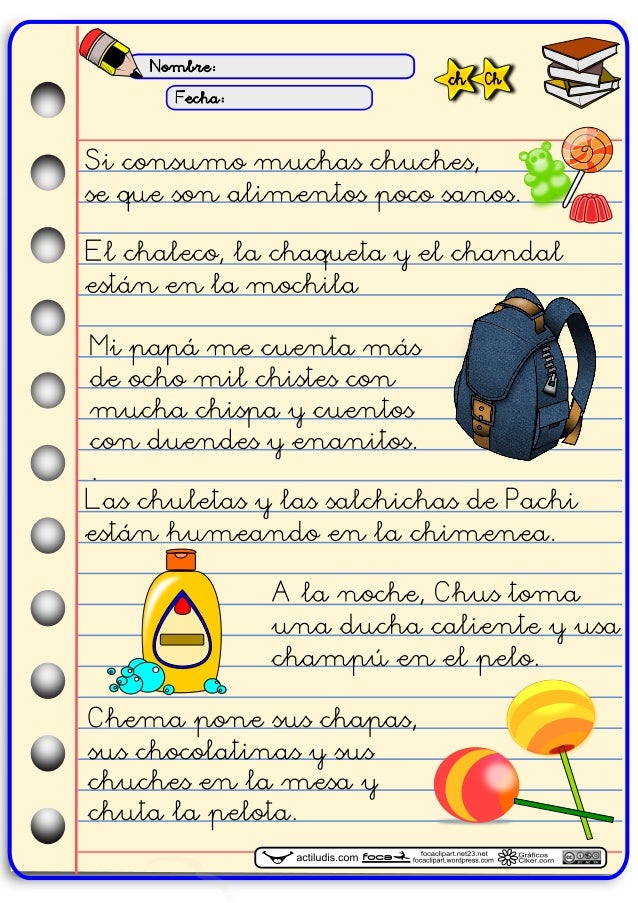 Nombre:
ch Ch
Fecha:
Si consumo muchas chuches,
se que son alimentos poco sanos.
El chaleco, la chaqueta y el chandal
están en la mochila
Mi papá me cuenta más
de ocho mil chistes con
mucha chispa y cuentos
con duendes y enanitos.
.
Las chuletas y las salchichas de Pachi
están humeando en la chimenea.
A la noche, Chus toma
una ducha caliente y usa
champú en el pelo.
Chema pone sus chapas,
sus chocolatinas y sus
chuches en la mesa y
chuta la pelota.
actiludis.com foca focaclipart.net23.net Gráficos
focaclipart.wordpress.com Clker.com